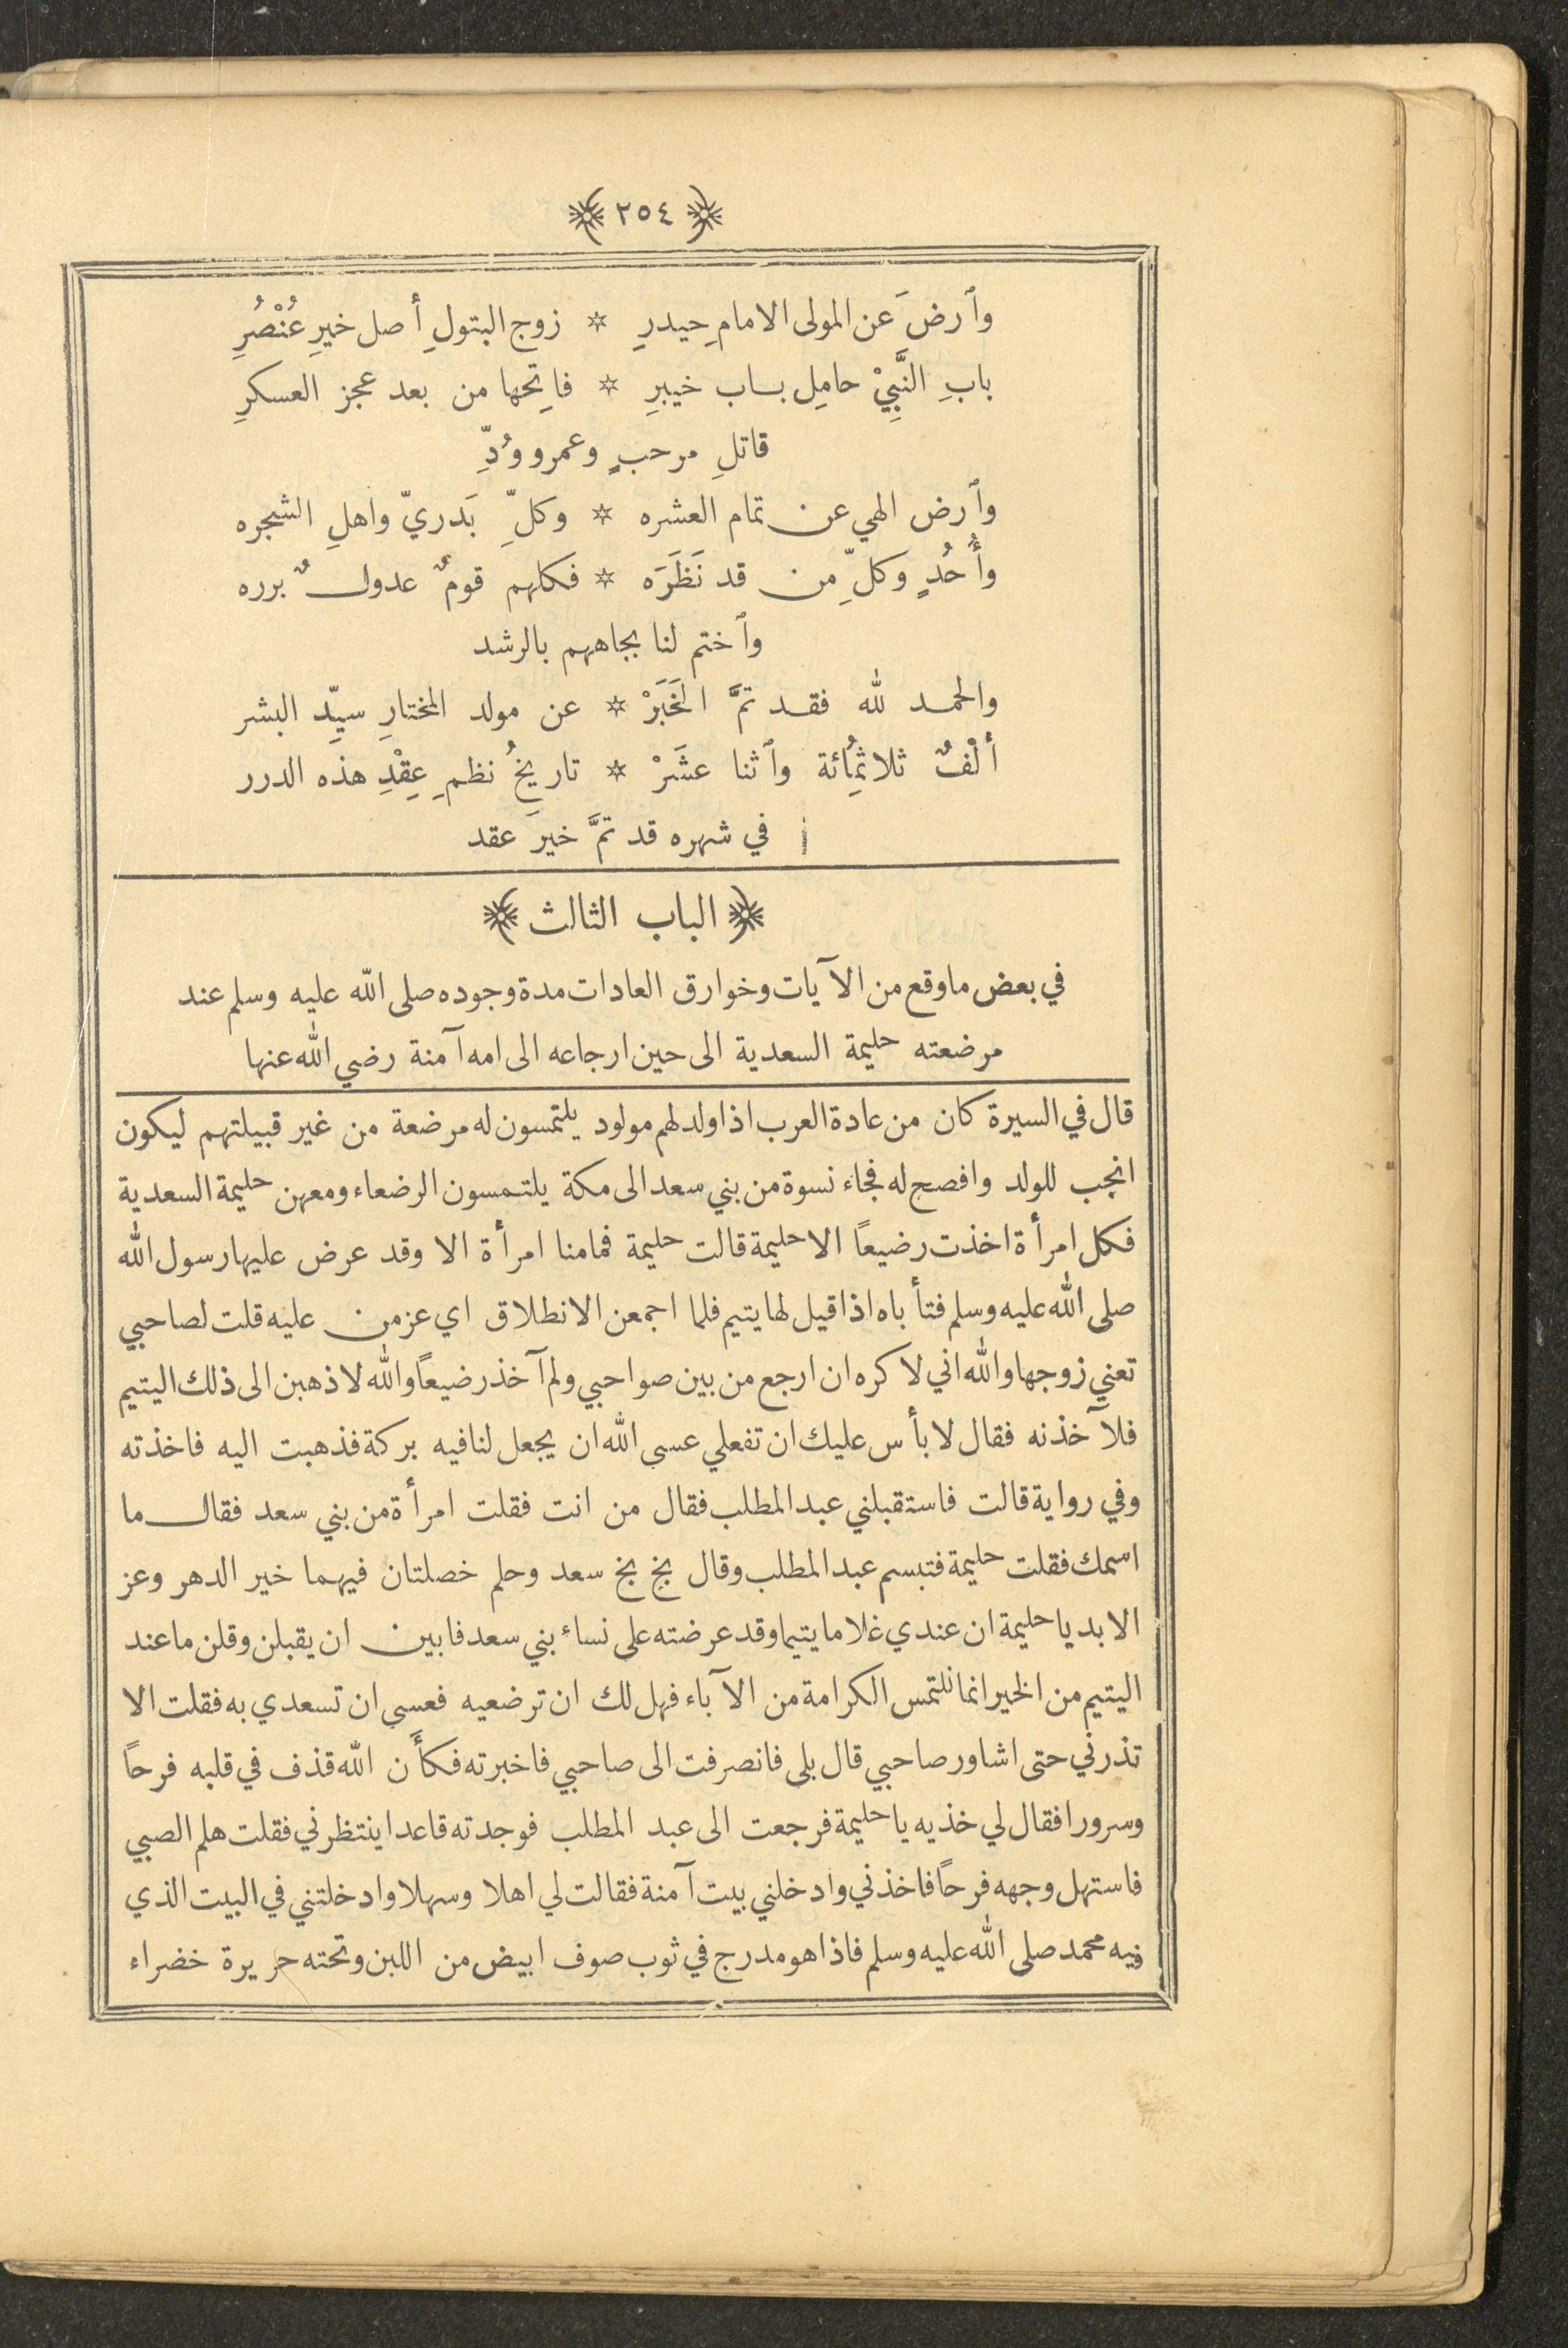 ﴿ ٢٥٤ ﴾
وٱرضَ عن المولى الامامِ حيدرِ * زوج البتولِ أصل خيرِ عُنْصُرِ
بابِ النَّبِيْ حامِل بـاب خيبرِ * فاتِحها من بعد عجز العسكرِ
قاتلِ مرحبٍ وعمرو وُدِّ
وٱرض الهي عن تمام العشره * وكلِّ بَدريّ واهلِ الشجره
وأُحُدٍ وكلِّ من قد نَظَرَه * فكلهم قومٌ عدولٌ برره
وٱختم لنا بجاههم بالرشد
والحمد لله فقد تمَّ الخَبَرْ * عن مولد المختارِ سيِّد البشر
ألْفٌ ثلاثمِائة وٱثنا عشَرْ * تاريخُ نظمِ عِقْدِ هذه الدرر
في شهره قد تمَّ خيرَ عقد
﴿ الباب الثالث ﴾
في بعض ما وقع من الآيات وخوارق العادات مدة وجوده صلى الله عليه وسلم عند
مرضعته حليمة السعدية الى حين ارجاعه الى امه آمنة رضي الله عنها
قال في السيرة كان من عادة العرب اذا ولد لهم مولود يلتمسون له مرضعة من غير قبيلتهم ليكون
انجب للولد وافصح له فجاء نسوة من بني سعد الى مكة يلتمسون الرضعاء ومعهن حليمة السعدية
فكل امرأة اخذت رضيعًا الا حليمة قالت حليمة فما منا امرأة الا وقد عرض عليها رسول الله
صلى الله عليه وسلم فتأباه اذا قيل لها يتيم فلما اجمعن الانطلاق اي عزمن عليه قلت لصاحبي
تعني زوجها والله اني لاكره ان ارجع من بين صواحبي ولم آخذ رضيعًا والله لاذهبن الى ذلك اليتيم
فلآخذنه فقال لا بأس عليك ان تفعلي عسى الله ان يجعل لنا فيه بركة فذهبت اليه فاخذته
وفي رواية قالت فاستقبلني عبد المطلب فقال من انت فقلت امرأة من بني سعد فقال ما
اسمك فقلت حليمة فتبسم عبد المطلب وقال بخ بخ سعد وحلم خصلتان فيهما خير الدهر وعز
الابد يا حليمة ان عندي غلاما يتيما وقد عرضته على نساء بني سعد فابين ان يقبلن وقلن ما عند
اليتيم من الخير انما نلتمس الكرامة من الآباء فهل لك ان ترضعيه فعسى ان تسعدي به فقلت الا
تذرني حتى اشاور صاحبي قال بلى فانصرفت الى صاحبي فاخبرته فكأَن الله قذف في قلبه فرحًا
وسرورا فقال لي خذيه يا حليمة فرجعت الى عبد المطلب فوجدته قاعدا ينتظرني فقلت هلم الصبي
فاستهل وجهه فرحًا فاخذني وادخلني بيت آمنة فقالت لي اهلا وسهلا وادخلتني في البيت الذي
فيه محمد صلى الله عليه وسلم فاذا هو مدرج في ثوب صوف ابيض من اللبن وتحته حريرة خضراء